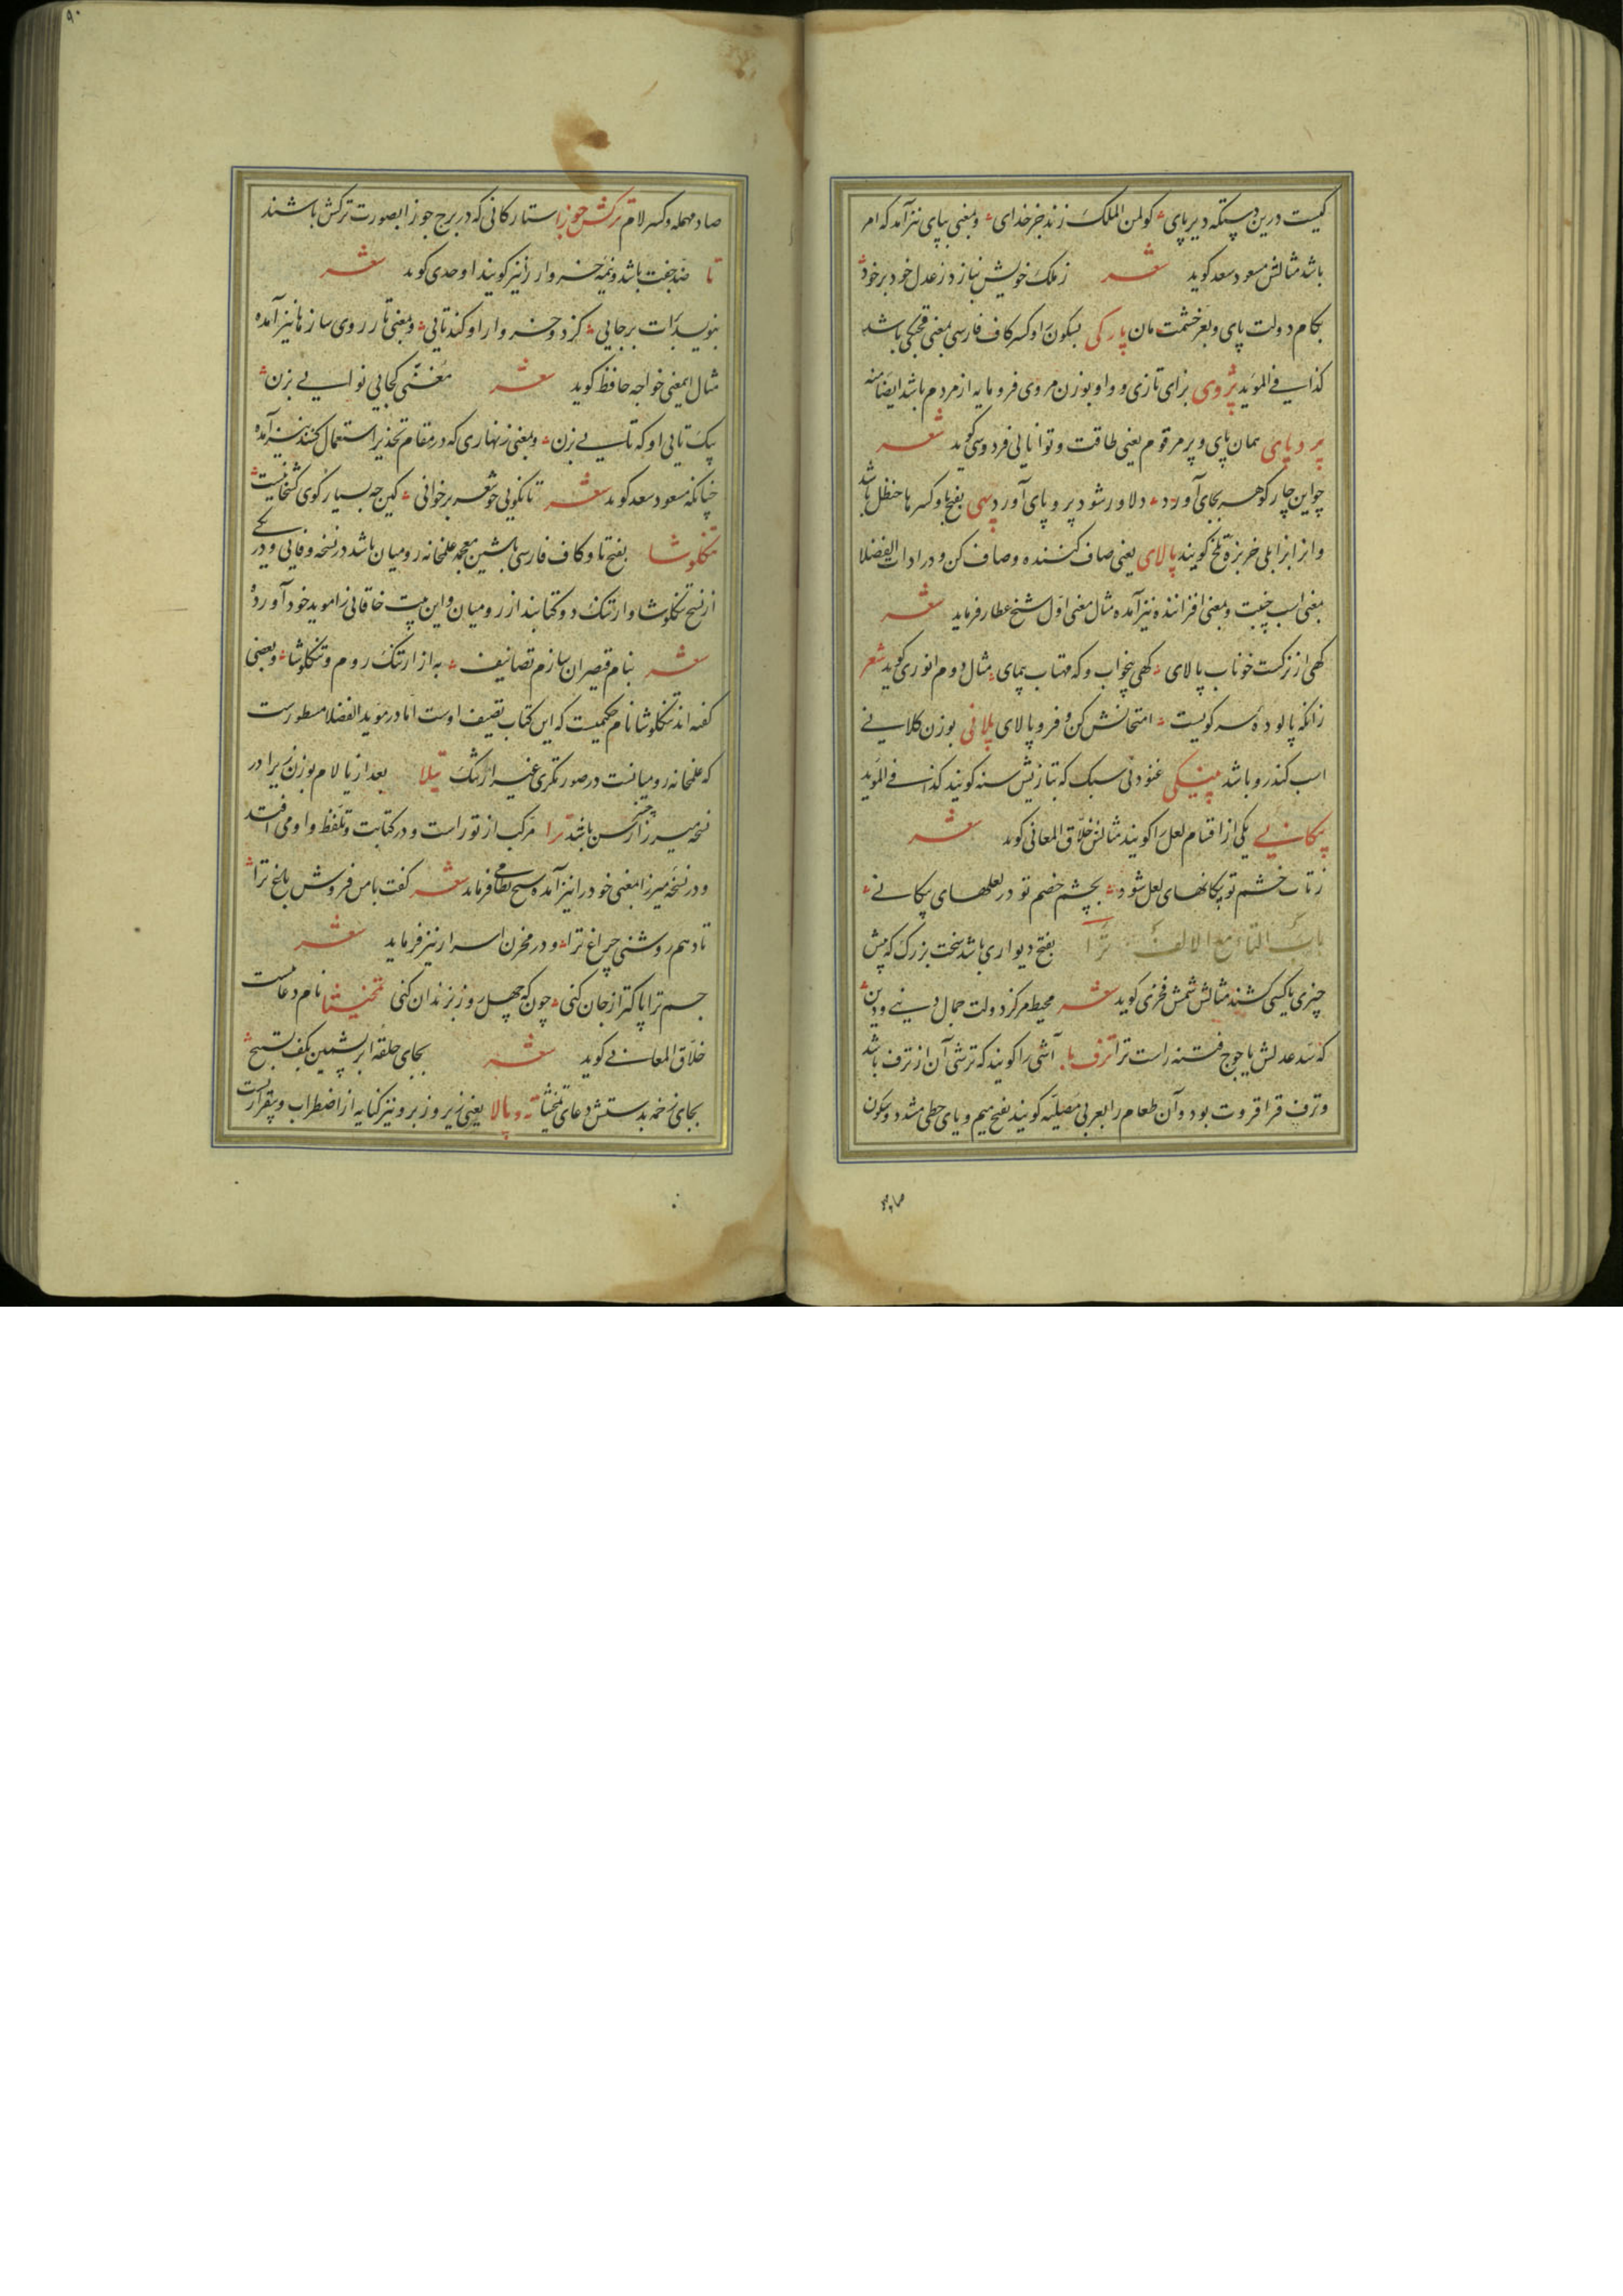 کیست درین دستگه دیرپای کو لمن الملک زند جز خدای و بمعنی بپای نیز آمد که امر
باشد مثالش مسعود سعد گوید شعر ز ملک خویش بناز و ز عدل خود برخور
بکام دولت پای و بعز حشمت مان پارکی بسکون را و کسر کاف فارسی بمعنی قحبگی باشد
کذا فی الموید پژوی بزای تازی و واو بوزن مروی فرومایه از مردم باشد ایضا منه
پر و پای همان پای و پر مرقوم یعنی طاقت و توانایی فردوسی گوید شعر
چو این چار گوهر بجای آورد دلاور شود پر و پای آورد پهی بفتح با و کسر ها حنظل باشد
و خربزه تلخ گویند پالای یعنی صاف کننده و صاف کن و در ادات الفضلا
بمعنی اسب جنیبت و بمعنی افزاننده نیز آمده مثال معنی اول شیخ عطار فرماید شعر
گهی از نرگست خوناب پالای گهی بیخواب و گه مهتاب پیمای مثال دوم انوری گوید شعر
زانکه پالوده سر کویست امتحانش کن و فرو پالای پلانی بوزن کلانی
اسب کندرو باشد پینکی غنودنی سبک که بتازیش سنه گویند کذا فی الموید
پیکانی یکی از اقسام لعل را گویند مثالش خلاق المعانی گوید شعر
ز تاب خشم تو پیکانهای لعل شود بچشم خصم تو در لعلهای پیکانی
باب التاء مع الالف ترا بفتح دیواری باشد سخت بزرگ که پیش
چیزی یا کسی کشند مثالش شمس فخری گوید شعر محیط مرکز دولت جمال دنیی و دین
که سد عدلش یاجوج فتنه راست ترا ترف با آشی را گویند که ترشی آن از ترف باشد
و ترف قراقروت بود و آن طعام را بعربی مصلیه گویند بفتح میم و یای حطی مشدد و سکون
صاد
۹۰
صاد مهمله و کسر لام ترکش جوزا ستارگانی که در برج جوزا بصورت ترکش باشند
تا ضد جفت باشد و نیمه خروار را نیز گویند اوحدی گوید شعر
بنویسد برات برجایی کز دو خروار او کند تایی و بمعنی تار روی سازها نیز آمده
مثال اینمعنی خواجه حافظ گوید شعر مغنی کجایی نوایی بزن
یک تایی او که تایی بزن و بمعنی زنهاری که در مقام تحذیر استعمال کنند نیز آمده
چنانکه مسعود سعد گوید شعر تا نگویی چو شعر برخوانی کین چه بسیار گوی کشخانیست
تنگلوشا بفتح تا و کاف فارسی با شین معجمه علمخانه رومیان باشد در نسخه وفایی و در یکی
از نسخ تنگلوشا و ارتنگ دو کتابند از رومیان و این بیت خاقانی را موید خود آورده
شعر بنام قیصران سازم تصانیف به از ارتنگ روم و تنگلوشا و بعضی
گفته اند تنگلوشا نام حکیمیت که این کتاب تصنیف اوست اما در موید الفضلا مسطورست
که علمخانه رومیانست در صورتگری غیر ارتنگ تیلا بعد از یا لام بوزن زیرا در
نسخه میرزا باشد ترا مرکب از تو راست و در کتابت و تلفظ واو می افتد
و در نسخه میرزا بمعنی خود را نیز آمده شیخ نظامی فرماید شعر گفت با من فروش باغ ترا
تا دهم روشنی چراغ ترا و در مخزن اسرار نیز فرماید شعر
جسم ترا پاکتر از جان کنی چون که چهل روز بزندان کنی تمخیثا نام دعاست
خلاق المعانی گوید شعر بجای حلقه ابریشمین بکف تسبیح
بجای زخمه بدستش دعای تمخیثا ته و بالا یعنی زیر و زبر و نیز کنایه از اضطراب و بیقراریست